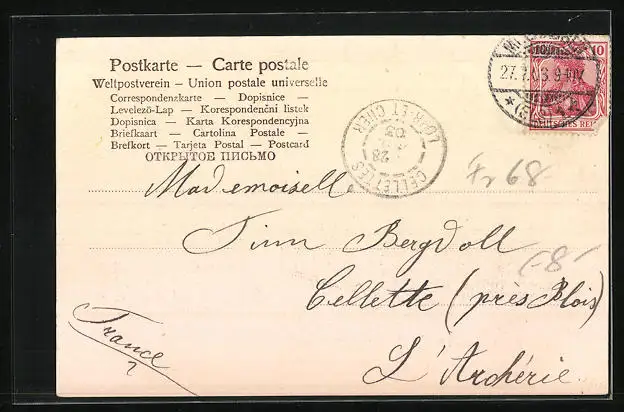 Postkarte — Carte postale
Weltpostverein – Union postale universelle
Correspondenzkarte — Dopisnice —
Levelező-Lap — Korespondenční listek
Dopisnica — Karta Korespondencyjna
Briefkaart — Cartolina Postale —
Brefkort — Tarjeta Postal — Postcard
ОТКРЫТОЕ ПИСЬМО
10
27.
LOIR-ET-CHER
28
03
CELLETTES
Fr 68
Mademoiselle
Finn Bergdoll
Cellette (près Blois)
L'Archérie
France